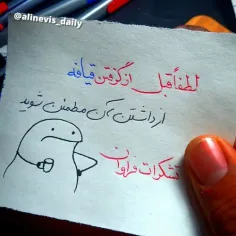 @alinevis_daily
لطفاً قبل از گرفتن قیافه
از داشتن آن مطمئن شوید
تشکرات فراوان